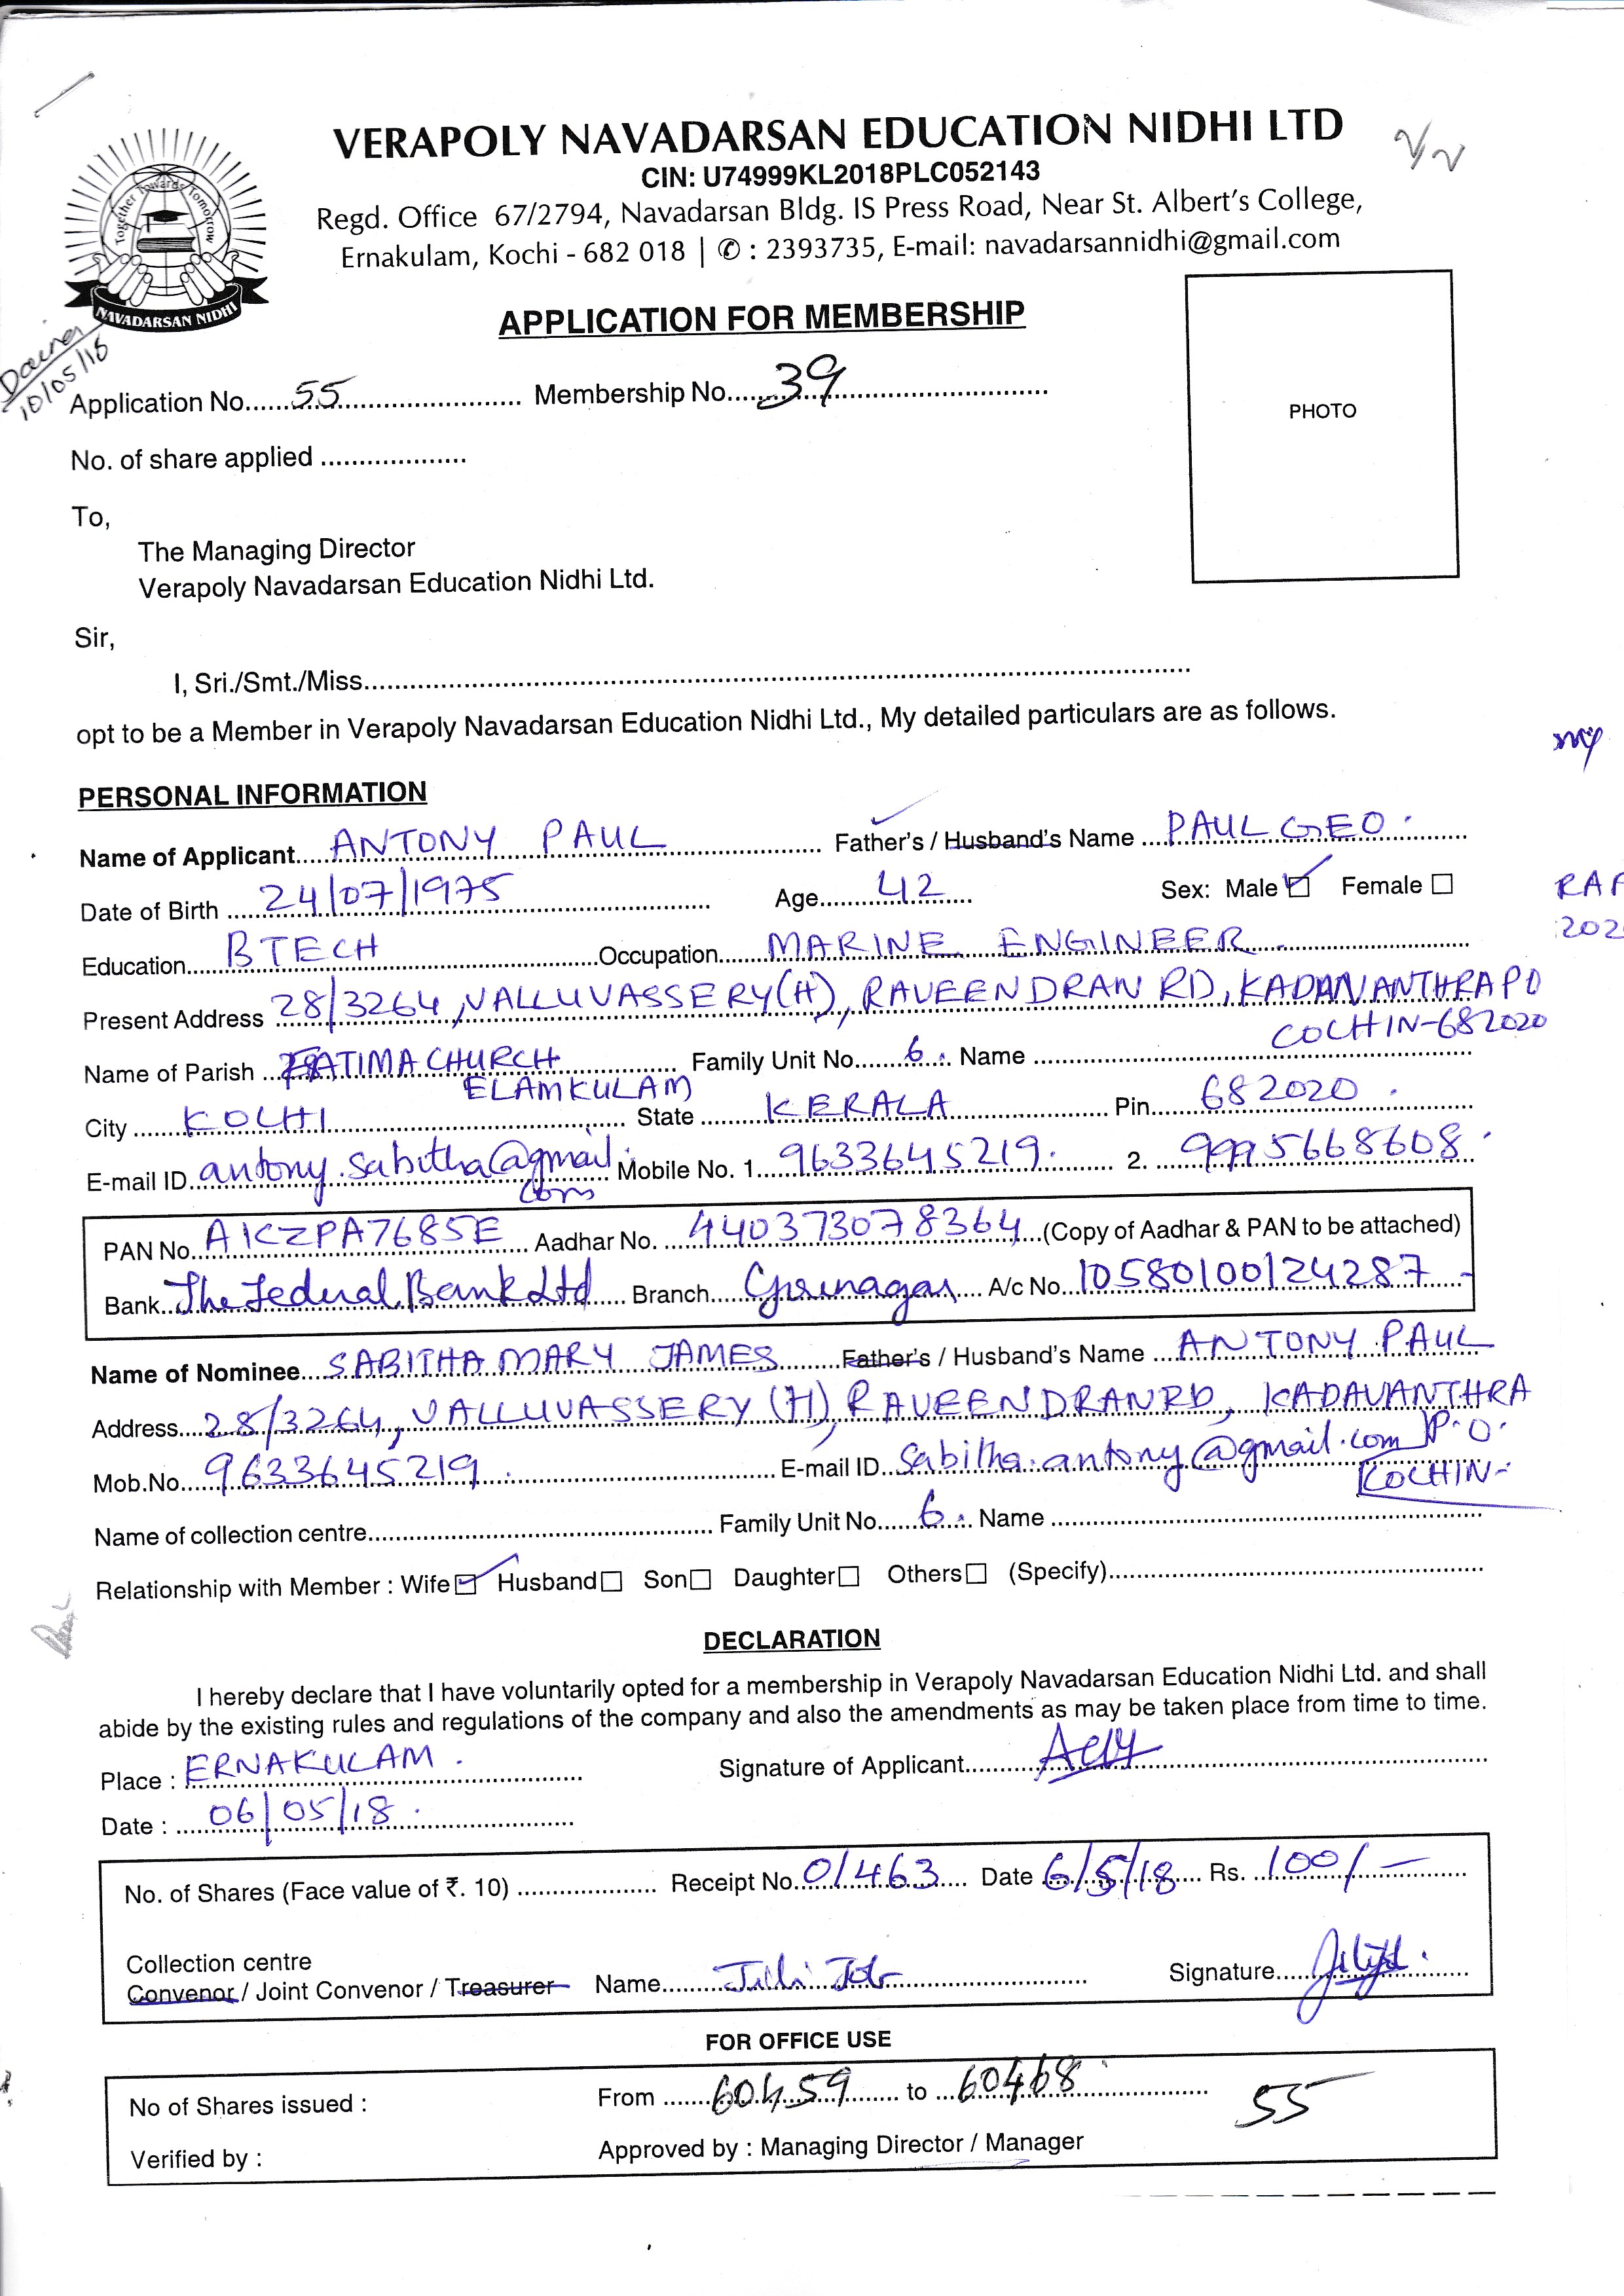 VERAPOLY NAVADARSAN EDUCATION NIDHI LTD
CIN: U74999KL2018PLC052143
Regd. Office 67/2794, Navadarsan Bldg. IS Press Road, Near St. Albert's College,
Ernakulam, Kochi - 682 018 | ✆ : 2393735, E-mail: navadarsannidhi@gmail.com
Together Towards Tomorrow
NAVADARSAN NIDHI
10/05/18
APPLICATION FOR MEMBERSHIP
PHOTO
Application No......55.............................. Membership No.....39..............................
No. of share applied ...................
To,
The Managing Director
Verapoly Navadarsan Education Nidhi Ltd.
Sir,
I, Sri./Smt./Miss..........................................................................................
opt to be a Member in Verapoly Navadarsan Education Nidhi Ltd., My detailed particulars are as follows.
PERSONAL INFORMATION
Name of Applicant....ANTONY PAUL.................... Father's / Husband's Name ...PAUL GEO.............
Date of Birth ....24/07/1975.................... Age.......42....... Sex: Male ☑ Female ☐
RAF
202
Education.....BTECH....................Occupation......MARINE ENGINEER....................
Present Address 28/3264, VALLUVASSERY(H), RAVEENDRAN RD, KADAVANTHRA PO
COCHIN-682020
Name of Parish ...FATIMA CHURCH.................... Family Unit No......6... Name ..............................
ELAMKULAM
City .......KOCHI.................... State ........KERALA.................... Pin......682020..............
E-mail ID..antony.sabitha@gmail. Mobile No. 1...9633645219........ 2. ...9995668608...
com
PAN No..AKZPA7685E.... Aadhar No. ...440373078364...(Copy of Aadhar & PAN to be attached)
Bank..The Federal Bank Ltd.... Branch.....Girinagar... A/c No...10580100124287.....
Name of Nominee....SABITHA MARY JAMES........Father's / Husband's Name ...ANTONY PAUL
Address....28/3264, VALLUVASSERY (H), RAVEENDRAN RD, KADAVANTHRA
P.O.
Mob.No...9633645219.............................. E-mail ID..Sabitha.antony@gmail.com
KOCHIN-
Name of collection centre.................................................. Family Unit No......6.... Name ..............................
Relationship with Member : Wife ☑ Husband ☐ Son ☐ Daughter ☐ Others ☐ (Specify)..............................
DECLARATION
I hereby declare that I have voluntarily opted for a membership in Verapoly Navadarsan Education Nidhi Ltd. and shall
abide by the existing rules and regulations of the company and also the amendments as may be taken place from time to time.
Place : ERNAKULAM.................... Signature of Applicant..............................
Date : ....06/05/18....................
No. of Shares (Face value of ₹. 10) .................... Receipt No..01463.... Date 6/5/18.... Rs. ..100/-..........
Collection centre
Convenor / Joint Convenor / Treasurer Name........Juli Job.................... Signature....................
FOR OFFICE USE
No of Shares issued : From .......60459....... to ...60468............... 55
Verified by : Approved by : Managing Director / Manager